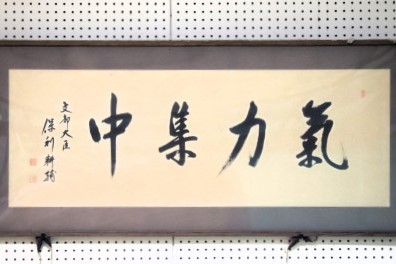 氣力集中
文部大臣
保利耕輔